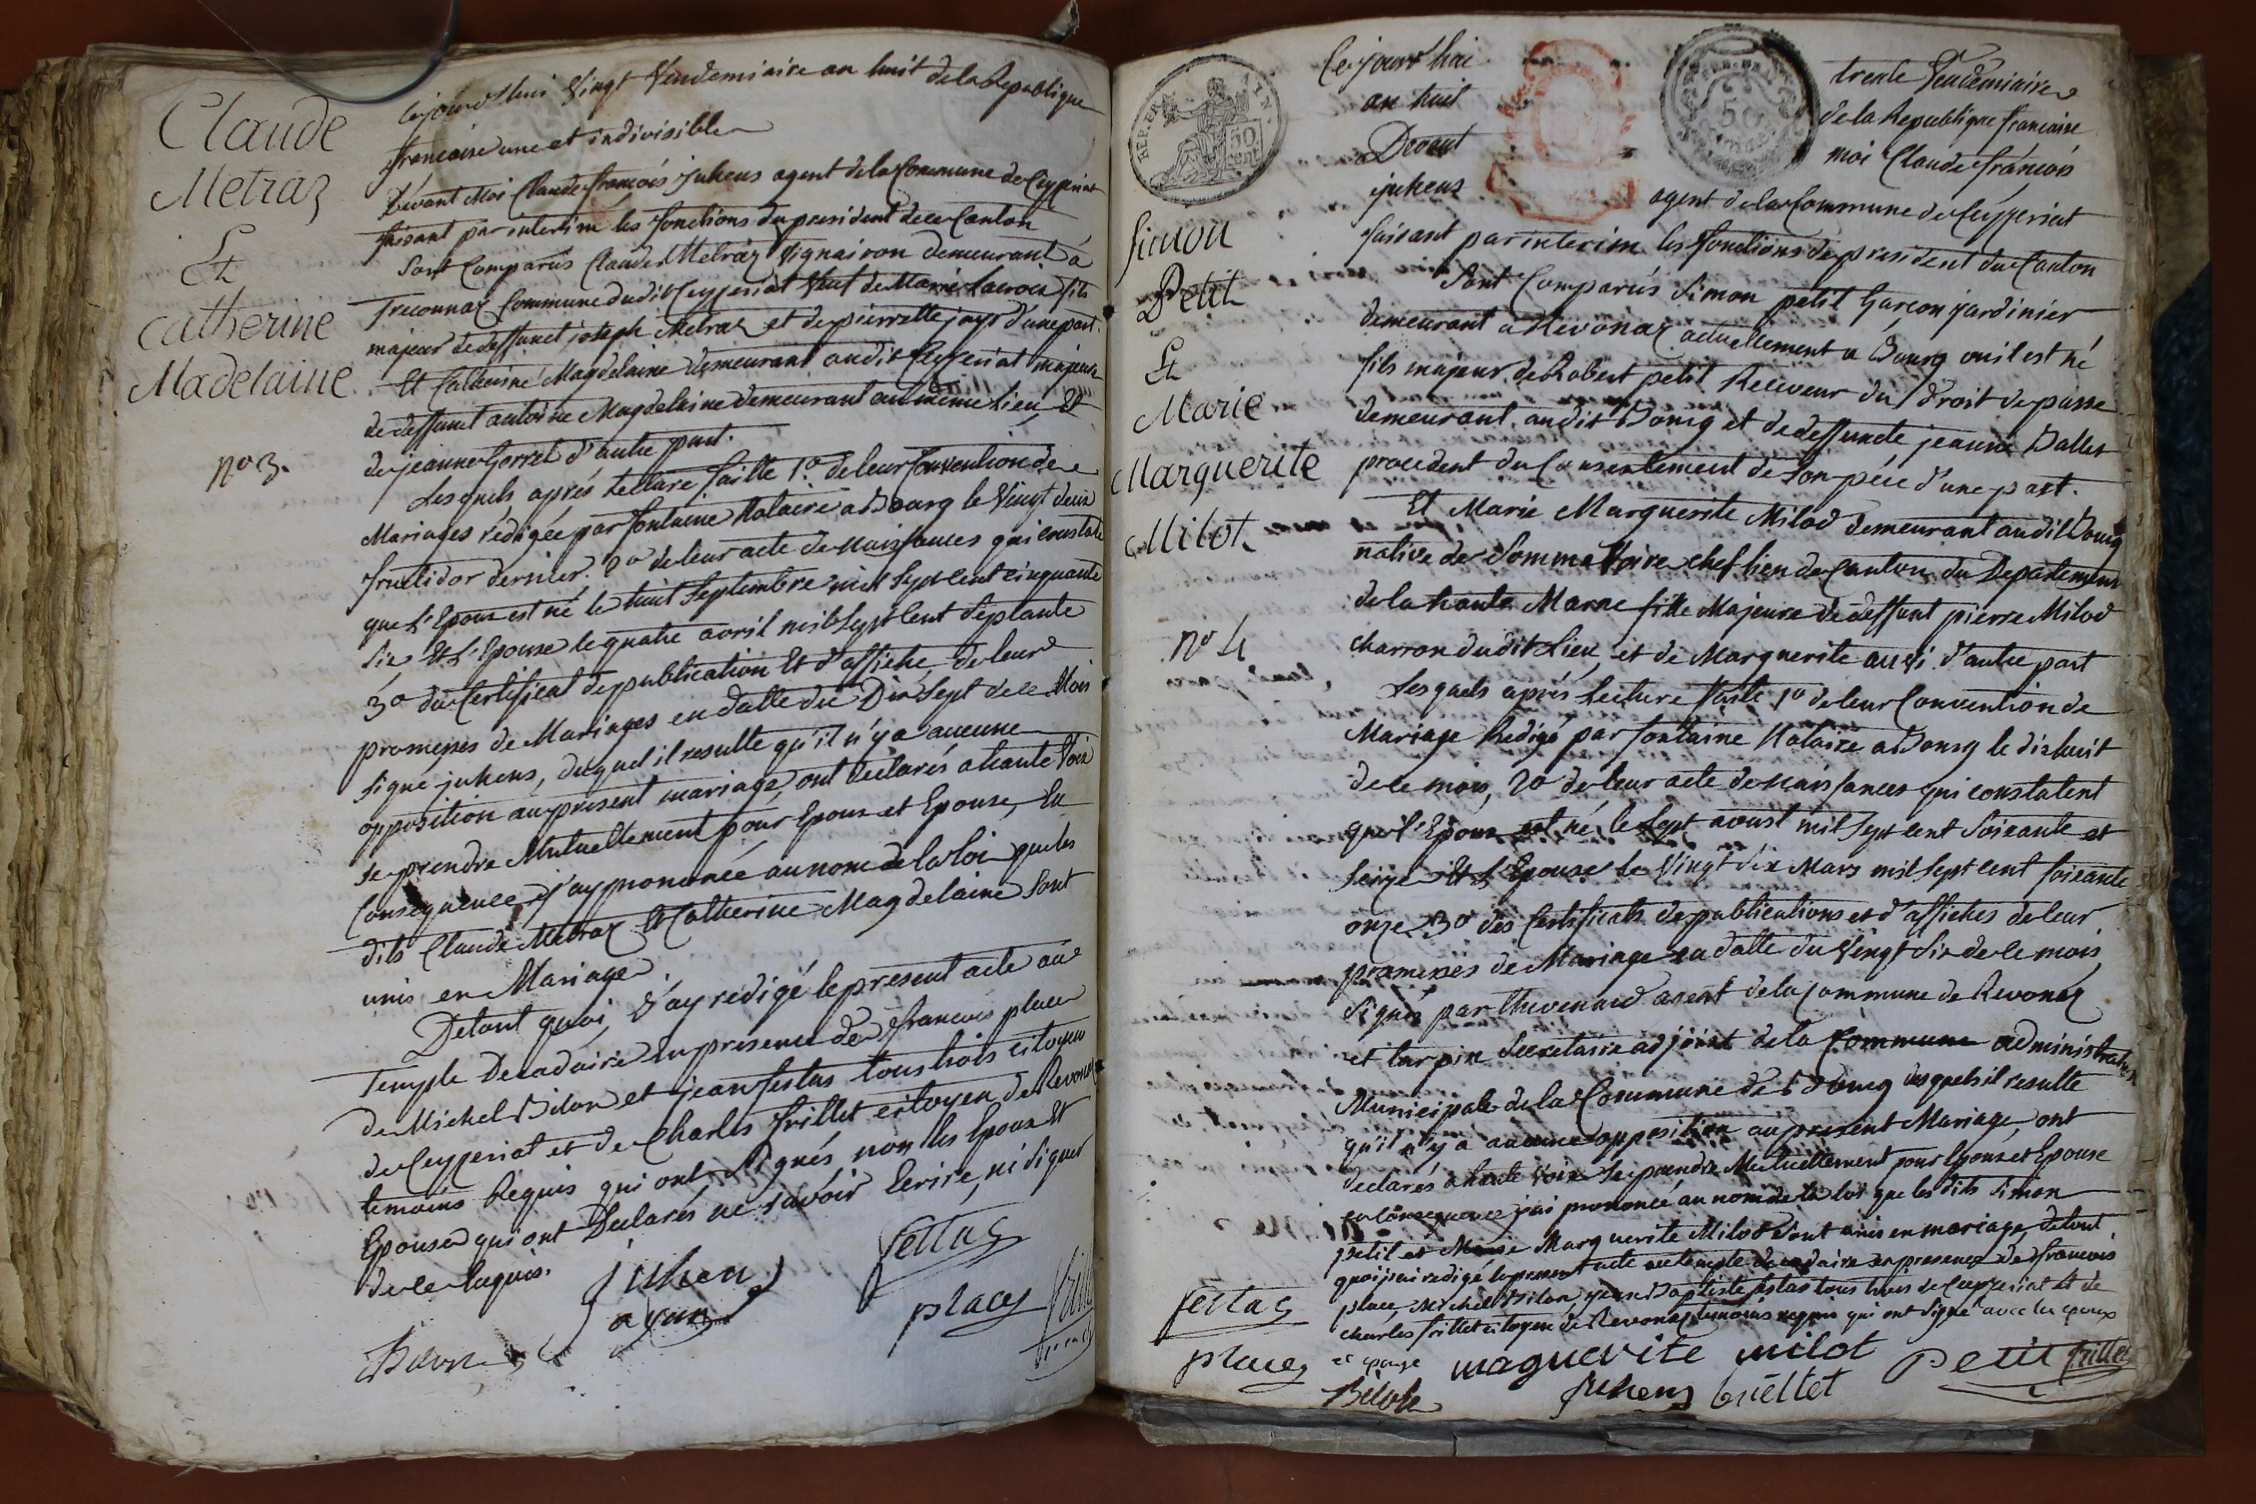 Claude
Metraz
Et
Catherine
Madelaine
no 3.
Cejourd'hui Vingt Vendemiaire an huit de la Republique
francaise une et indivisible
Devant Moi Claude francois juhens agent de la Commune de Ceyzeriat
faisant par interim les fonctions du president de ce Canton
Sont Comparus Claude Metraz Vigneron demeurant à
Treconnaz Commune dudit Ceyzeriat Veuf de Marie Lacroix fils
majeur de deffunct joseph Metraz et de pierrette jayr d'une part.
Et Catherine Magdelaine demeurant audit Ceyzeriat majeure
de deffunct antoine Magdelaine demeurant au même Lieu Et
de jeanne Gorrel d'autre part.
Lesquels aprés lecture faitte 1o. de leur Convention de
Mariages rédigée par fontaine Notaire a Bourg le Vingt deux
fructidor dernier. 2o de leur acte de naissances qui constate
que L'Epoux est né le huit Septembre mil Sept Cent cinquante
Six Et L'Epouse le quatre avril mil Sept Cent Septante
3o du Certificat de publication Et d'affiche de leur
promesses de Mariages en datte du Dix Sept de ce Mois
Signé juhens, duquel il resulte qu'il n'y a aucune
opposition au present mariage, ont declarés a haute Voix
se prendre Mutuellement pour Epoux et Epouse, En
Consequence j'ay prononcée au nom de la loi que les
dits Claude Metraz Et Catherine Magdelaine Sont
unis en Mariage
De tout quoi, J'ay redigé le present acte au
Temple Decadaire en presence de francois place
de Michel Bilon et jean festas tous trois citoyens
de Ceyzeriat et de Charles frillet citoyen de Revonaz
temoins Requis qui ont Signés non les Epoux Et
Epouse qui ont Declarés ne savoir Ecrire, ni Signer
de ce Requis.
juhens
agent
festas
places
frillet
Bilon
Simon
Petit
Et
Marie
Marguerite
Milot
no 4
REP. FRA.
50
cent.
50
Cejourd'hui trente Vendemiaire
an huit de la Republique francaise
Devant moi Claude francois
juhens agent de la Commune de Ceyzeriat
faisant par interim les fonctions de president du Canton
Sont Comparus Simon petit Garcon jardinier
demeurant a Revonaz actuellement a Bourg ou il est né
fils majeur de Robert petit Receveur du droit de passe
demeurant audit Bourg et de deffuncte jeanne Ballet
procedent du Consentement de Son pére d'une part.
Et Marie Marguerite Milod demeurant audit Bourg
native de Sommevoire chef lieu de Canton du Departement
de la haute Marne fille Majeure de deffunt pierre Milod
charron dudit Lieu, et de Marguerite aussi d'autre part
Lesquels aprés Lecture faite 1o de leur Convention de
Mariage Redigé par fontaine Notaire a Bourg le dixhuit
de ce mois, 2o de leur acte de naissances qui constatent
que l'Epoux est né le Sept avoust mil Sept cent Soixante et
Seize Et L'Epouse le Vingt dix Mars mil Sept cent soixante
onze 3o des Certificats de publications et d'affiches de leur
promesses de Mariage en datte du Vingt Six de ce mois
Signés par thevenard agent de la Commune de Revonaz
et tarpin Secretaire adjoint de la Commune administration
Municipale de la Commune de Bourg desquels il resulte
qu'il n'y a aucune opposition au present Mariage, ont
declarés a haute voix Se prendre Mutuellement pour Epoux et Epouse
en Consequence j'ai prononcé au nom de la loi que les dits Simon
petit et Marie Marguerite Milod Sont unis en mariage, de tout
quoi j'ai redigé le present acte au temple decadaire en presence de francois
place, Michel Bilon jean Baptiste festas tous trois de Ceyzeriat et de
charles frillet citoyen de Revonaz temoins requis qui ont Signé avec les epoux
et epouse
festas
places
Bilon
maguerite milot
juhens
Petit
frillet